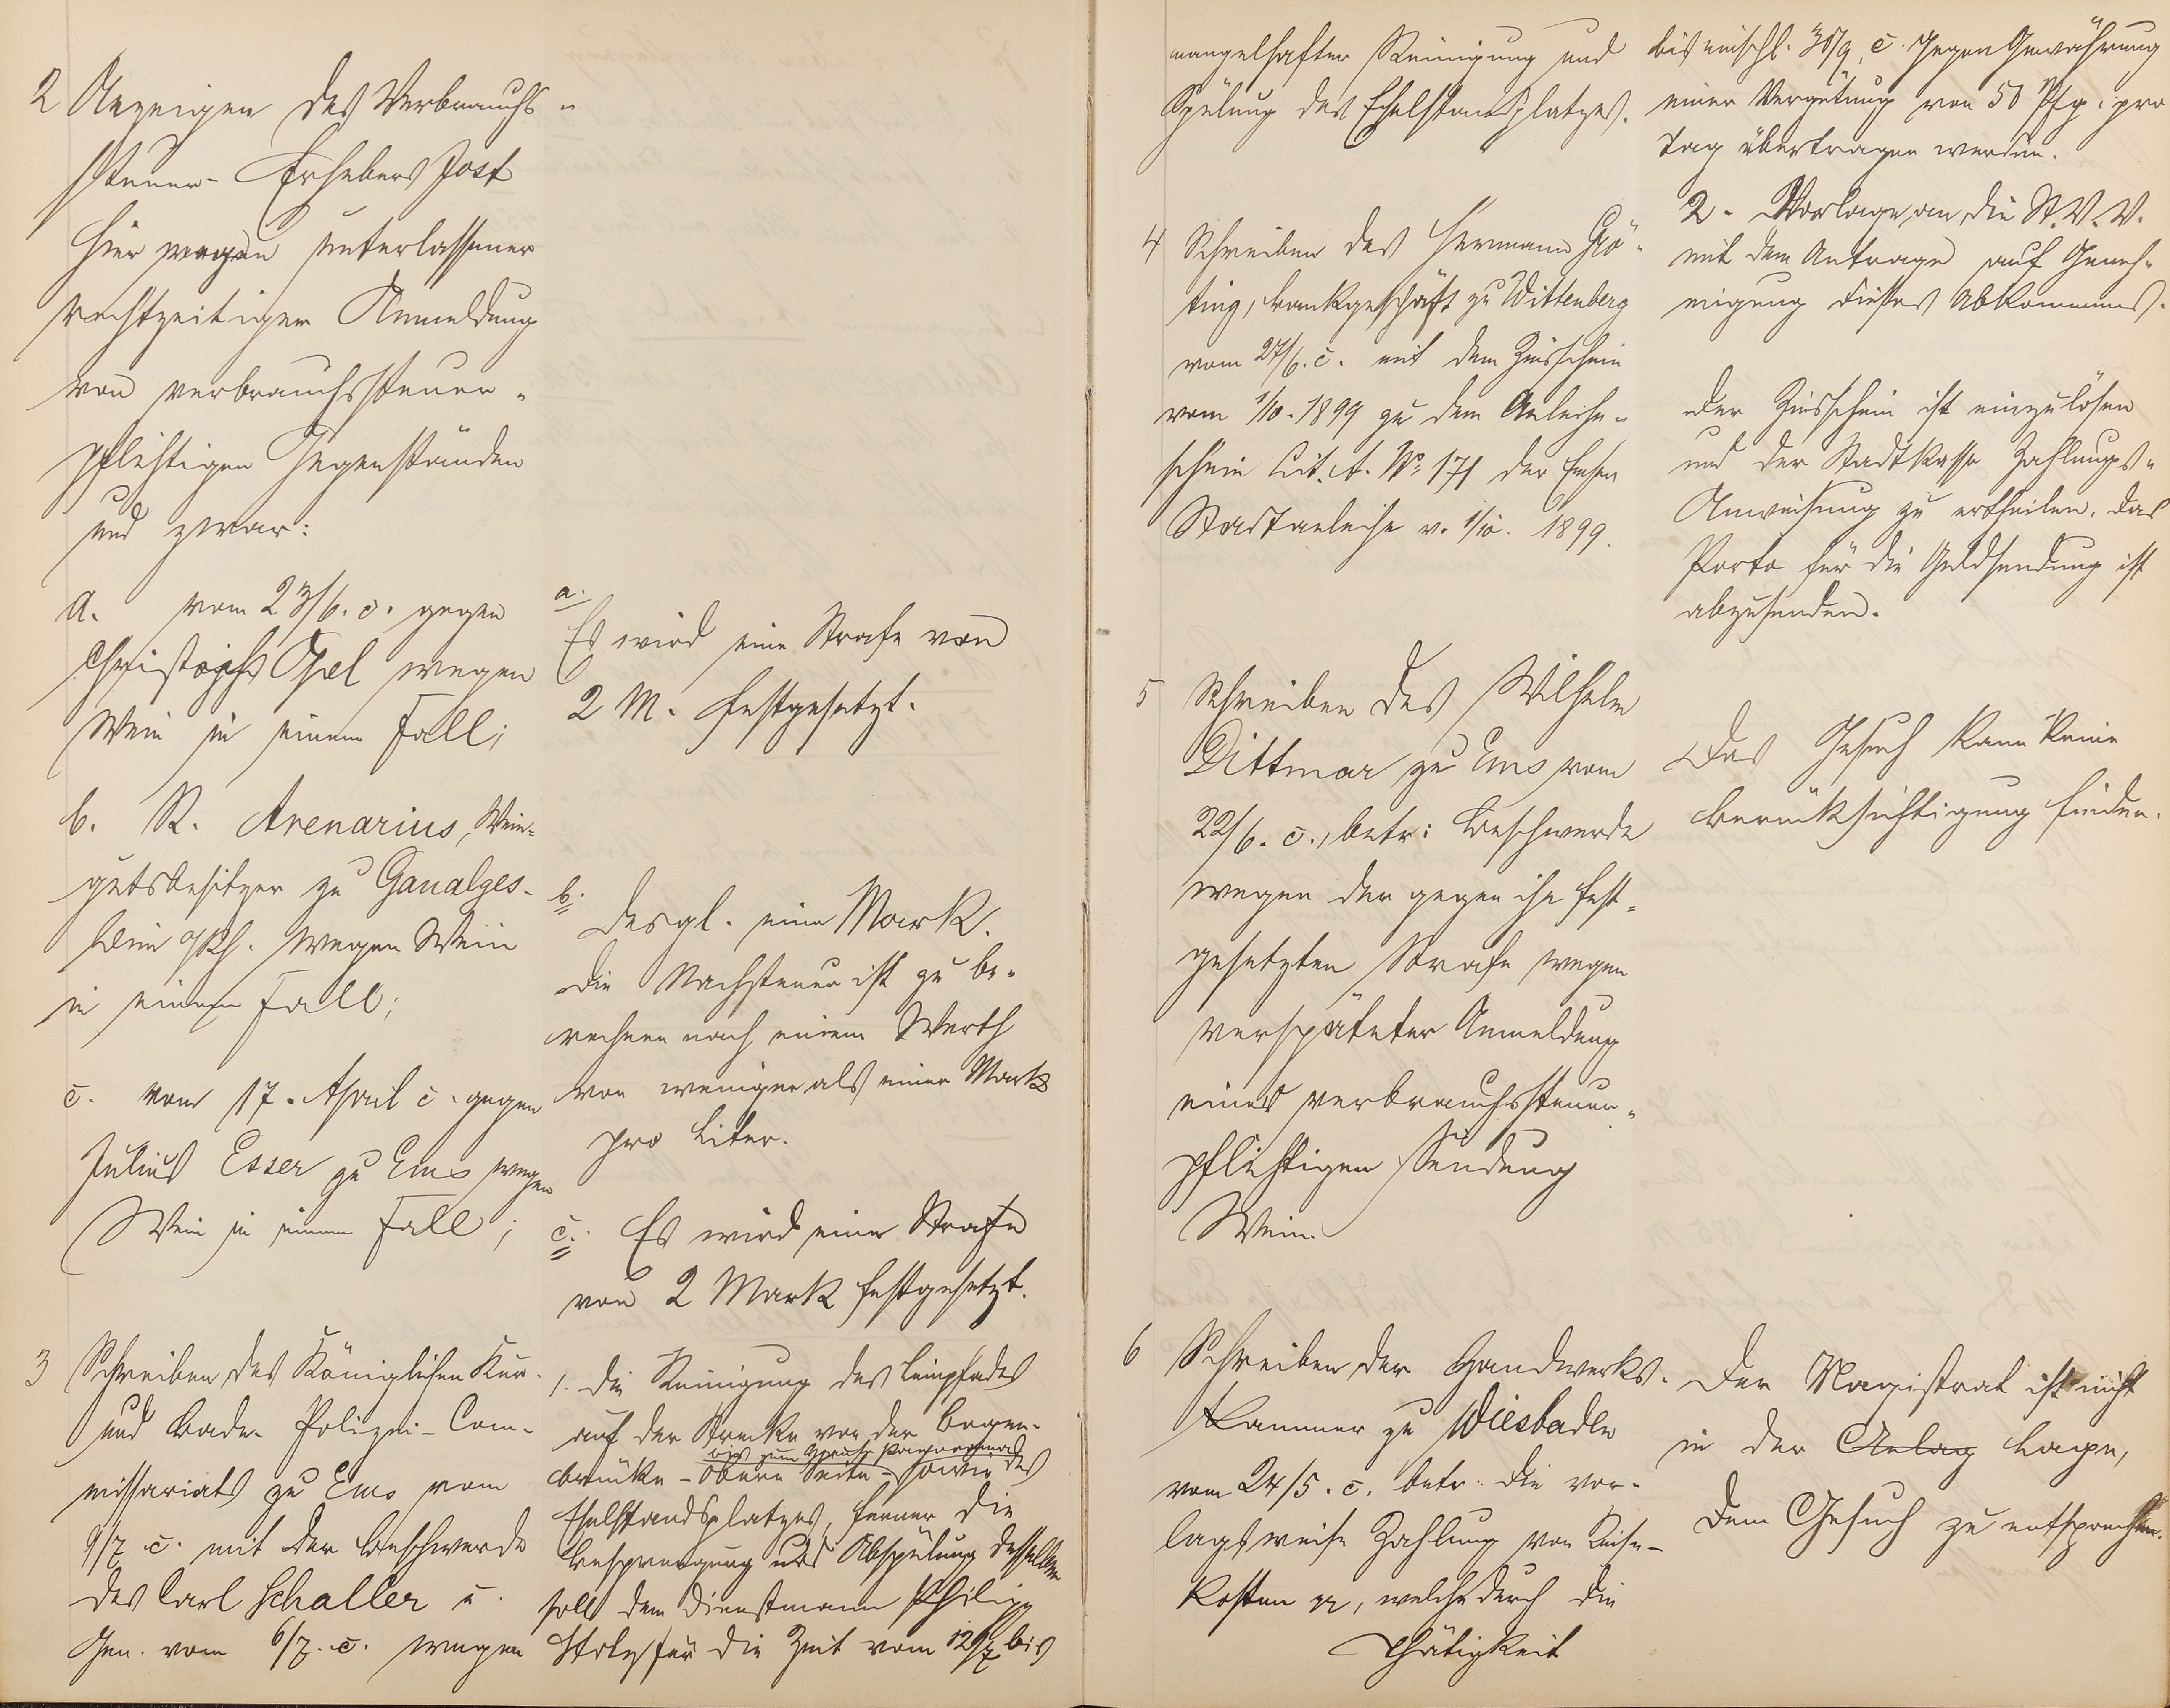 2 Anzeigen des Verbrauchs-
steuer-Erhebers Jost
hier wegen unterlassener
rechtzeitiger Anmeldung
von verbrauchssteuer-
pflichtigen Gegenständen
und zwar:
a. vom 23/6. c. gegen
Christoph Ogel wegen
Wein in einem Fall;
b. R. Arenarius, Wein-
gutsbesitzer zu Gaualges-
heim a/Rh. wegen Wein
in einem Fall;
c. vom 17. April c. gegen
Julius Esser zu Ems wegen
Wein in einem Fall;
3 Schreiben des Königlichen Kur-
und Bade-Polizei-Com-
missariats zu Ems vom
9/7 c. mit der Beschwerde
des Carl Schaller u.
Gen. vom 6/7. c. wegen
a.
Es wird eine Strafe von
2 M. festgesetzt.
b.
desgl. eine Mark.
Die Nachsteuer ist zu be-
rechnen nach einem Werth
von weniger als einer Mark
pro Liter.
c. Es wird eine Strafe
von 2 Mark festgesetzt.
1. Die Reinigung des Leinpfades
auf der Strecke von der Bogen-
bis zum
brücke - obere Seite - sowie des
Eselstandsplatzes, ferner die
Besprengung und Abspülung desselben
soll dem Dienstmann Philipp
für die Zeit vom 12/7 bis
mangelhafter Reinigung und
Spülung des Eselstandsplatzes.
4 Schreiben des Hermann Grö-
ting, Bankgeschäft zu Wittenberg
vom 27/6. c. mit dem Zinsschein
vom 1/10. 1899 zu dem Anleihe-
schein Lit. A. No 171 der Emser
Stadtanleihe v. 1/10. 1899.
5 Schreiben des Wilhelm
Dittmar zu Ems vom
22/6. c., betr: Beschwerde
wegen der gegen ihn fest-
gesetzten Strafe wegen
verspäteter Anmeldung
einer verbrauchssteuer-
pflichtigen Sendung
Wein.
6 Schreiben der Handwerks-
kammer zu Wiesbaden
vom 24/5. c. betr. die vor-
lagsweise Zahlung von Reise-
kosten pp, welche durch die
Thätigkeit
bis einschl. 30/9. c. gegen Gewährung
einer Vergütung von 50 Pfg. pro
Tag übertragen werden.
2. Vorlage an die St. V. V.
mit dem Antrage auf Geneh-
migung dieses Abkommens.
Der Zinsschein ist einzulösen
und der Stadtkasse Zahlungs-
Anweisung zu ertheilen. Das
Porto für die Geldsendung ist
abzusenden.
Das Gesuch kann keine
Berücksichtigung finden.
Der Magistrat ist nicht
in der Anlag Lage,
dem Gesuch zu entsprechen.